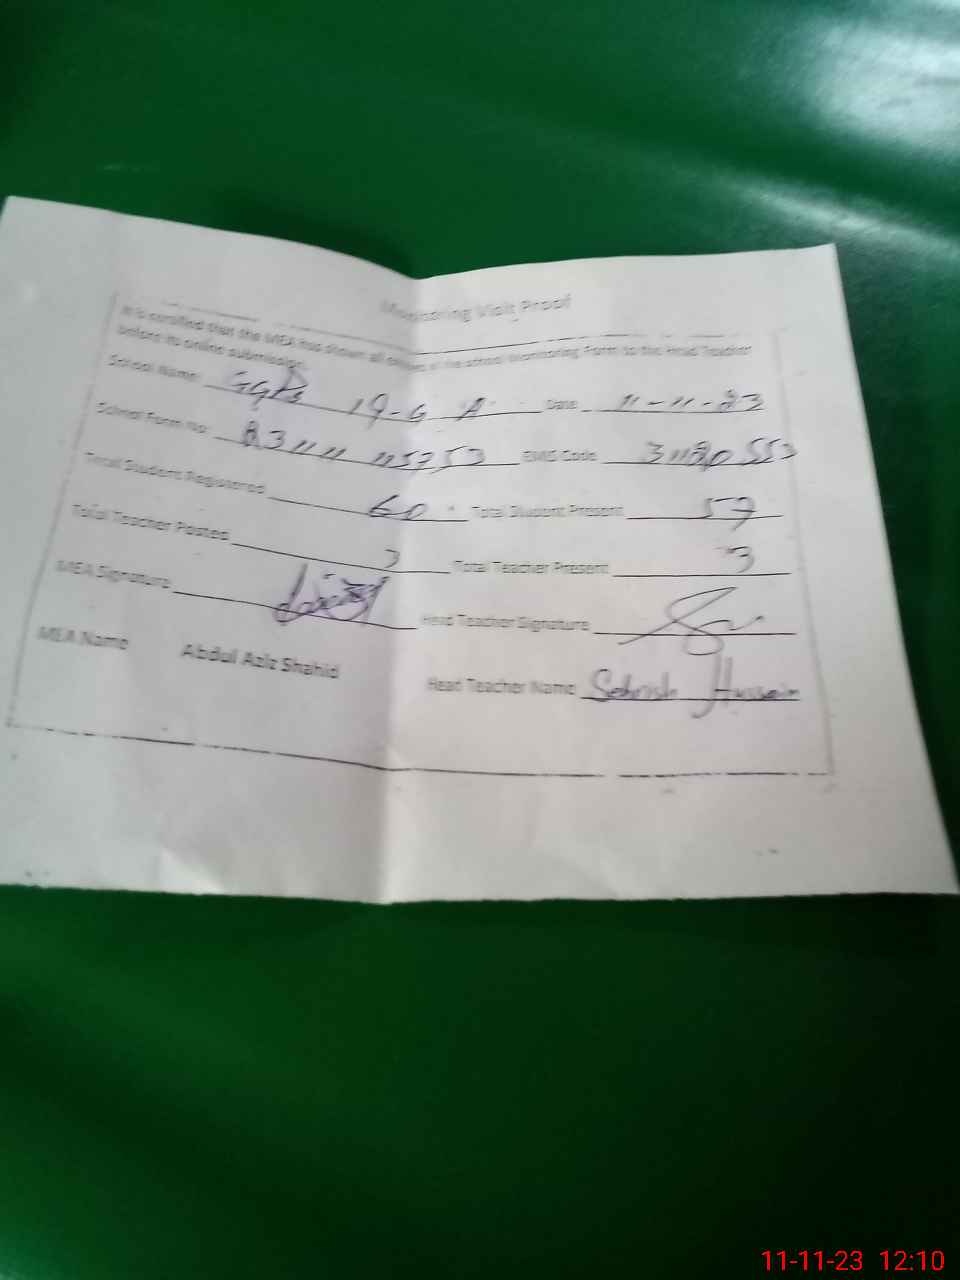 Monitoring Visit Proof
It is certified that the MEA has shown all of the school Monitoring Form to the Head Teacher
before its online submission.
School Name: GGPS 19-G Date 11-11-23
School Form No: EMIS Code
Total Student Registered 60 Total Student Present 57
Total Teacher Posted 3 Total Teacher Present 3
MEA Signature Head Teacher Signature
MEA Name Abdul Aziz Shahid Head Teacher Name Sehrish Hussain
11-11-23 12:10